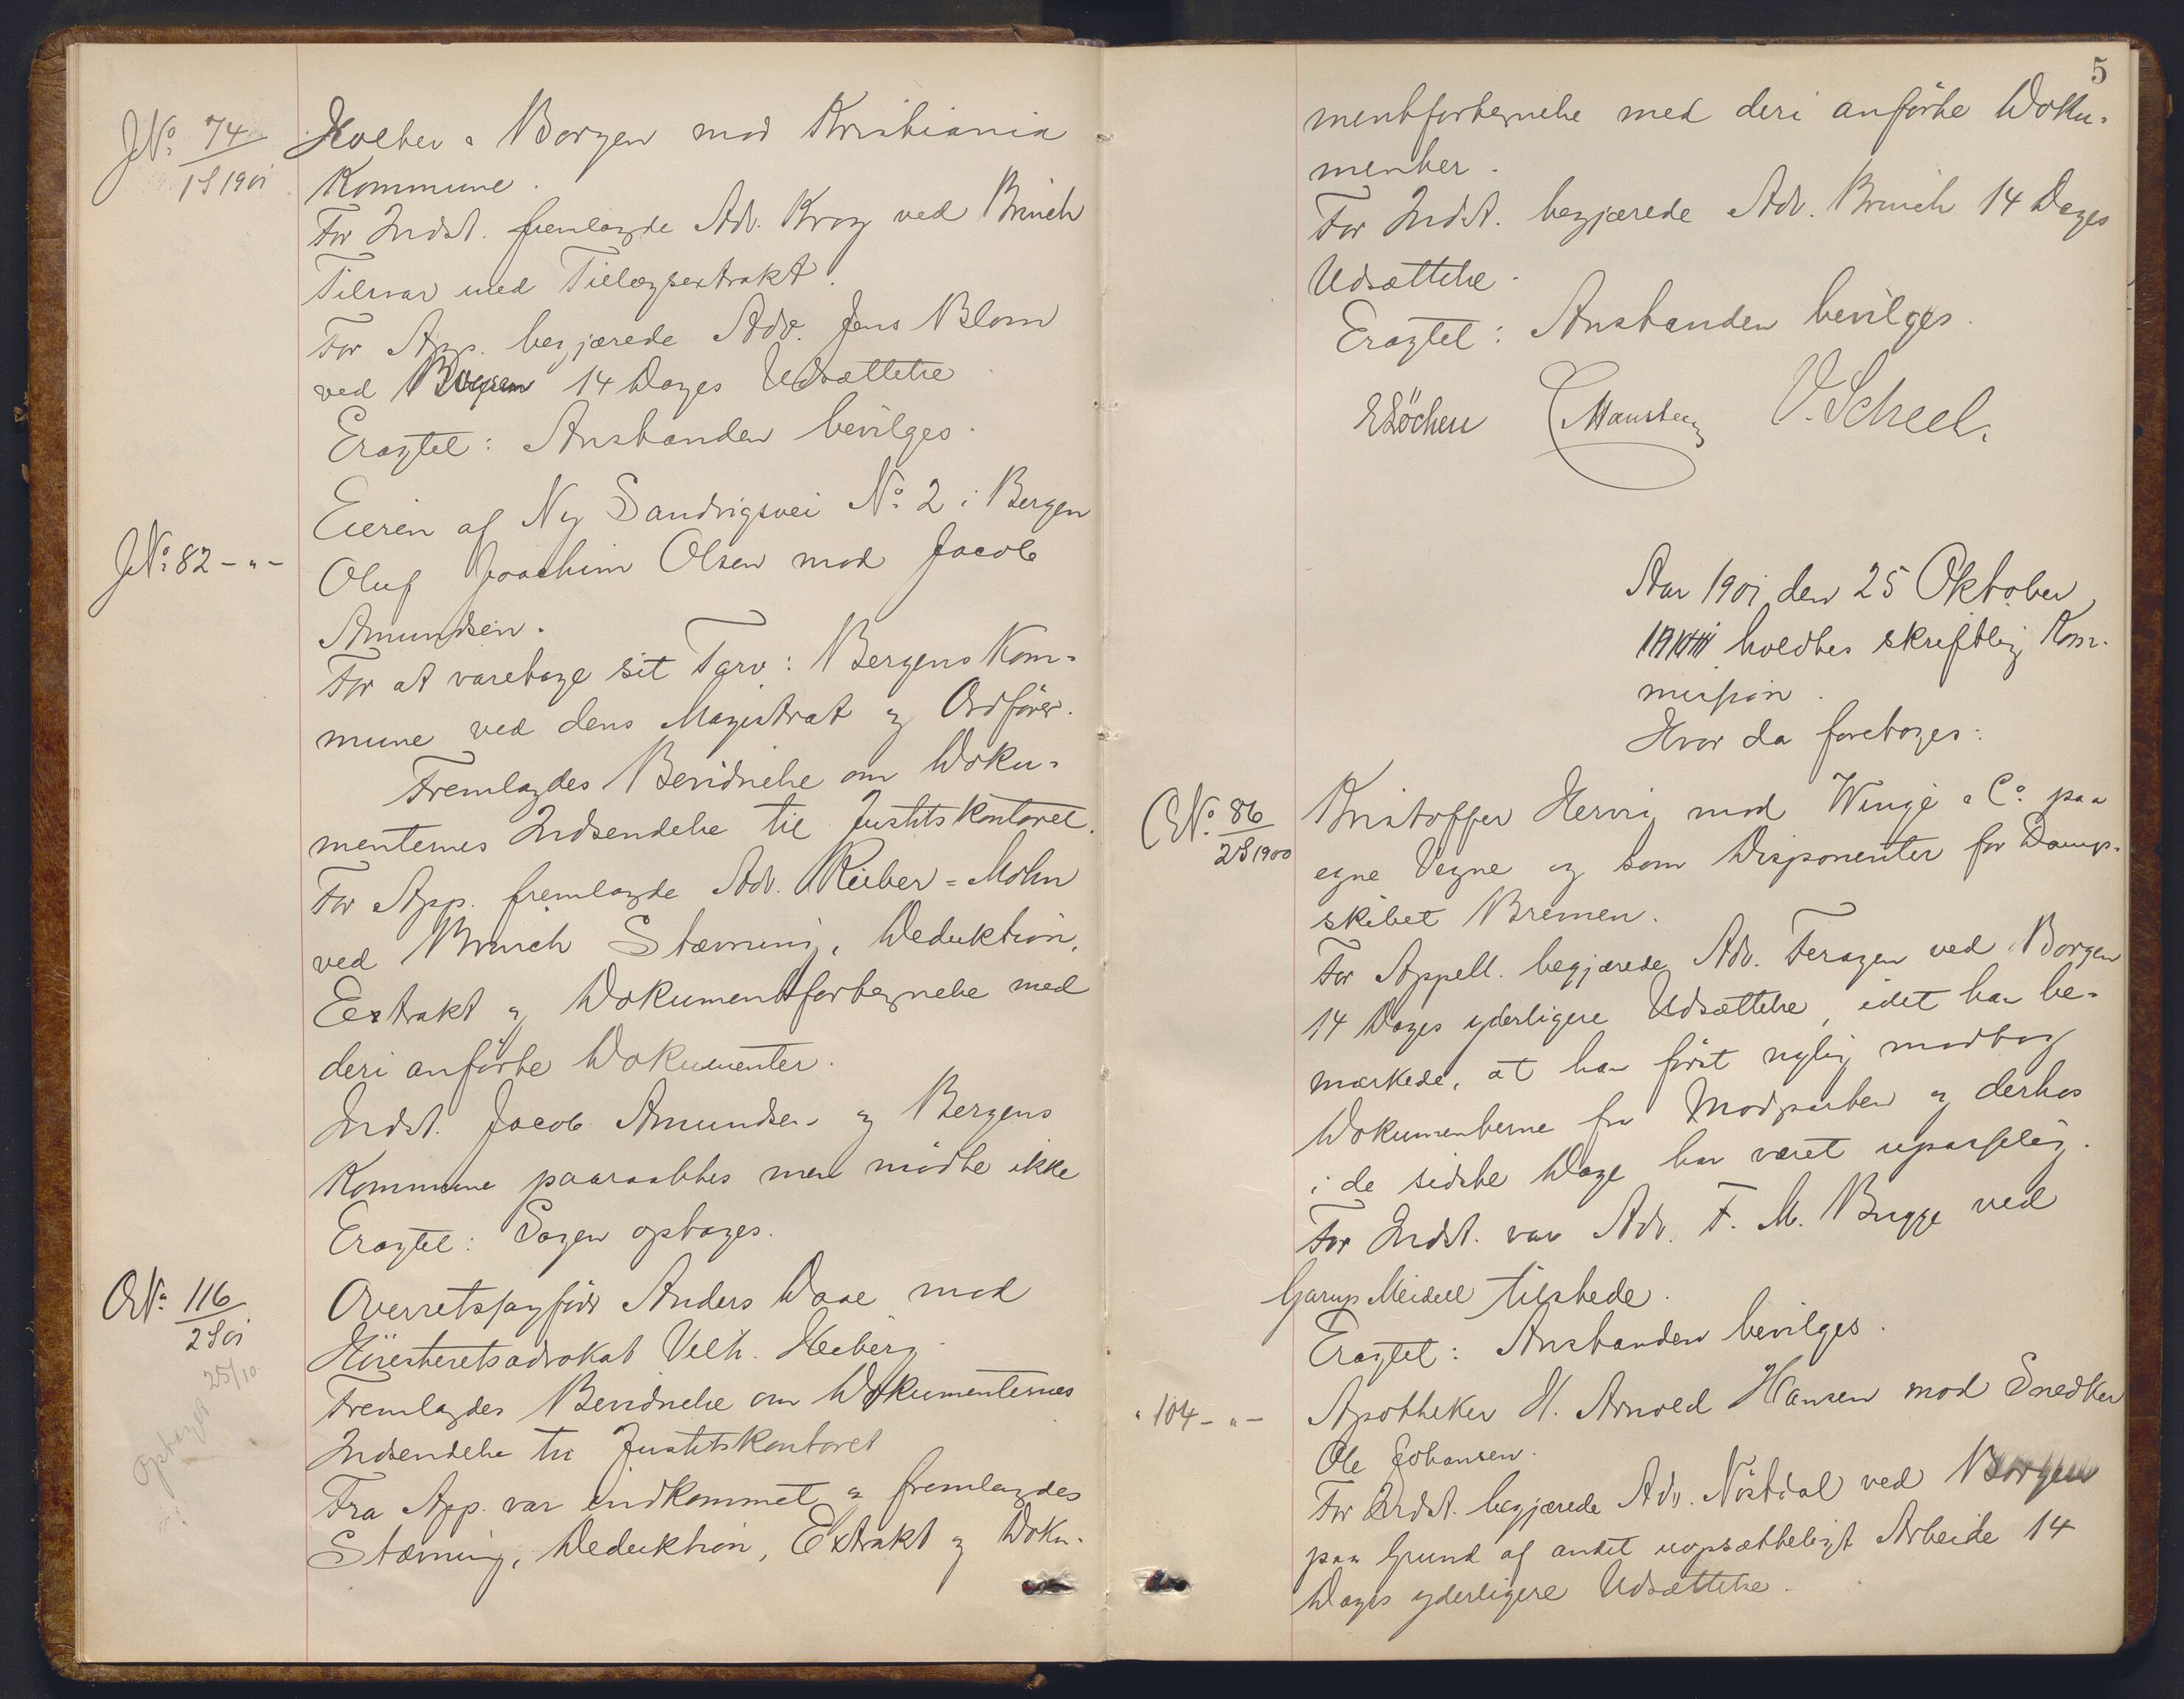 JNº 74
1 S 1901
Holter & Borgen mod Kristiania
Kommune.
For Indst. fremlagde Adv. Krog ved Bruch
Tilsvar med Tillægsextrakt.
For App. begjærede Adv. Jens Blom
ved 14 Dages Udsættelse
Eragtet: Anstanden bevilges.
JNº 82 - " -
Eieren af Ny Sandvigsvei Nº 2 i Bergen
Oluf Joachim Olsen mod Jacob
Amundsen.
For at varetage sit Tarv: Bergens Kom=
mune ved dens Magistrat og Ordfører.
Fremlagdes Bevidnelse om Doku=
menternes Indsendelse til Justitskontoret.
For App. fremlagde Adv. Rieber=Mohn
ved Bruch Stævning, Deduktion,
Extrakt og Dokumentfortegnelse med
deri anförte Dokumenter.
Indst. Jacob Amundsen og Bergens
Kommune paaraabtes men mödte ikke
Eragtet: Sagen optages.
ONº 116
2 S 01
25/10
Optages
Overretssagförer Anders Daae mod
Höiesteretsadvokat Vilh. Heiberg
Fremlagdes Bevidnelse om Dokumenternes
Indsendelse til Justitskontoret
Fra App. var indkommet & fremlagdes
Stævning, Deduktion, Extrakt og Doku=
5
mentfortegnelse med deri anförte Doku=
menter.
For Indst. begjærede Adv. Bruch 14 Dages
Udsættelse.
Eragtet: Anstanden bevilges.
E Löchen C Mansbach V. Scheel.
Aar 1901 den 25 Oktober
holdtes skriftlig Kom=
mission.
Hvor da foretoges:
ONº 86
2 S 1900
Kristoffer Hervig mod Winge & Cº paa
egne Vegne og som Disponenter for Damp=
skibet Bremen.
For Appell. begjærede Adv. Feragen ved Borgen
14 Dages yderligere Udsættelse, idet han be=
mærkede, at han först nylig modtog
Dokumenterne fra Modparten og derhos
i de sidste Dage har været upasselig.
For Indst. var Adv. F. M. Bugge ved
Garup Meidell tilstede.
Eragtet: Anstanden bevilges.
" 104 - " -
Apotheker H. Arnold Hansen mod Snedker
Ole Johansen.
For Indst. begjærede Adv. Nöstdal ved Borgen
paa Grund af andet uopsætteligt Arbeide 14
Dages yderligere Udsættelse.